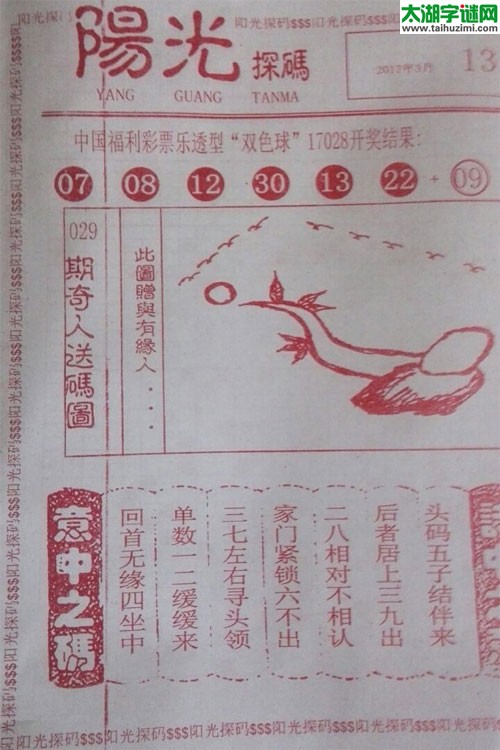 太湖字谜网
www.taihuzimi.com
阳光探码$$$阳光探码$$$阳光探码$$$
陽光探碼
YANG GUANG TANMA
2017年3月
13
中国福利彩票乐透型“双色球”17028开奖结果:
07 08 12 30 13 22 + 09
029
期奇人送碼圖
此圖贈與有緣人....
头码五子结伴来
后者居上三九出
二八相对不相认
家门紧锁六不出
三七左右寻头领
单数一二缓缓来
回首无缘四坐中
意中之碼
阳光探码$$$阳光探码$$$阳光探码$$$阳光探码$$$阳光探码$$$